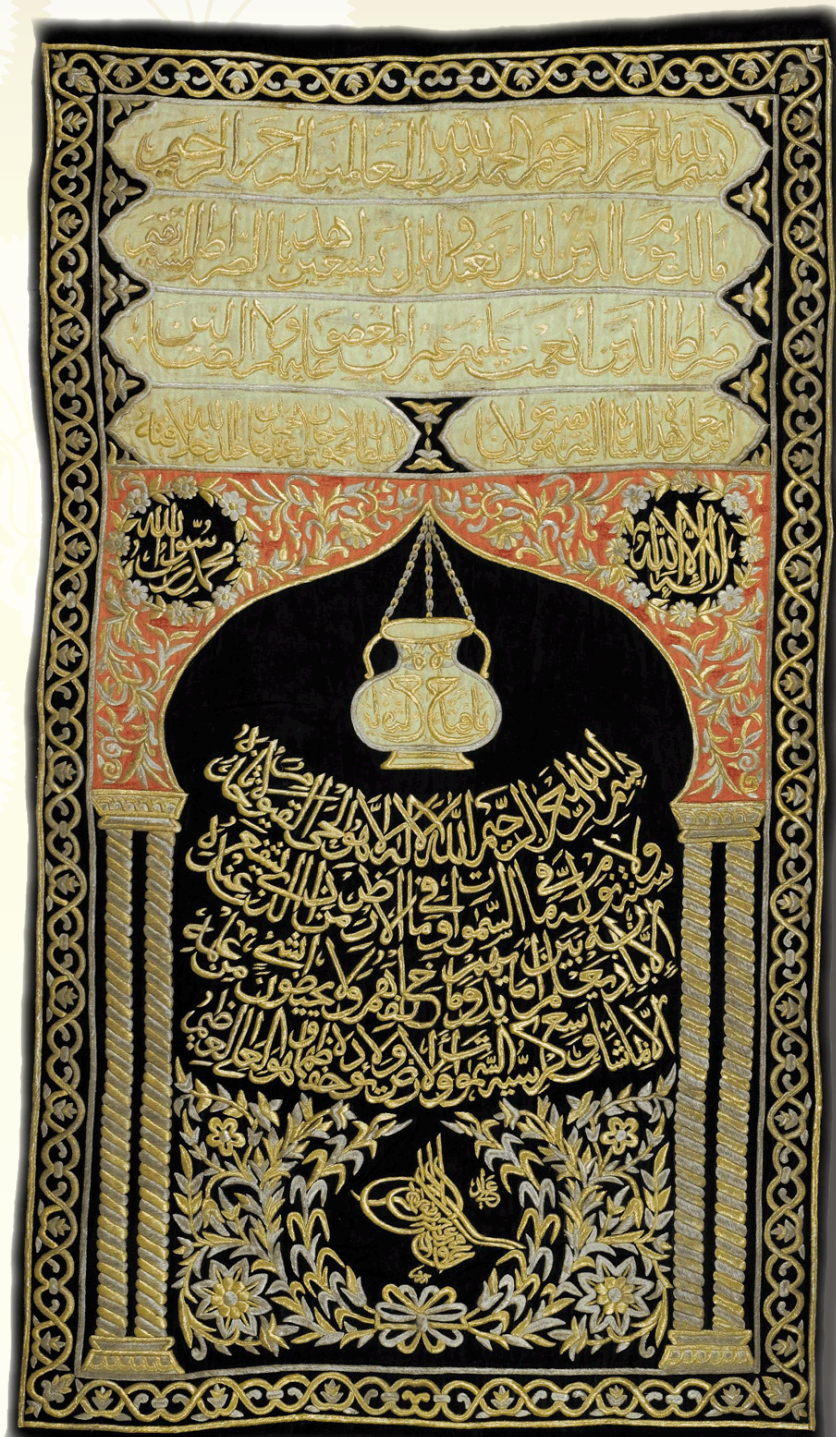 بسم الله الرحمن الرحيم الحمد لله رب العالمين الرحمن الرحيم
مالك يوم الدين اياك نعبد واياك نستعين اهدنا الصراط المستقيم
صراط الذين انعمت عليهم غير المغضوب عليهم ولا الضالين
هذه الستارة الشريفة مولانا
السلطان محمود خان
لا اله الا الله
محمد رسول الله
بسم الله الرحمن الرحيم الله لا اله الا هو الحي القيوم لا تأخذه
سنة ولا نوم له ما في السموات وما في الارض من ذا الذي يشفع عنده
الا باذنه يعلم ما بين ايديهم وما خلفهم ولا يحيطون بشيء من علمه
الا بما شاء وسع كرسيه السموات والارض ولا يؤده حفظهما وهو العلي العظيم
عدلي